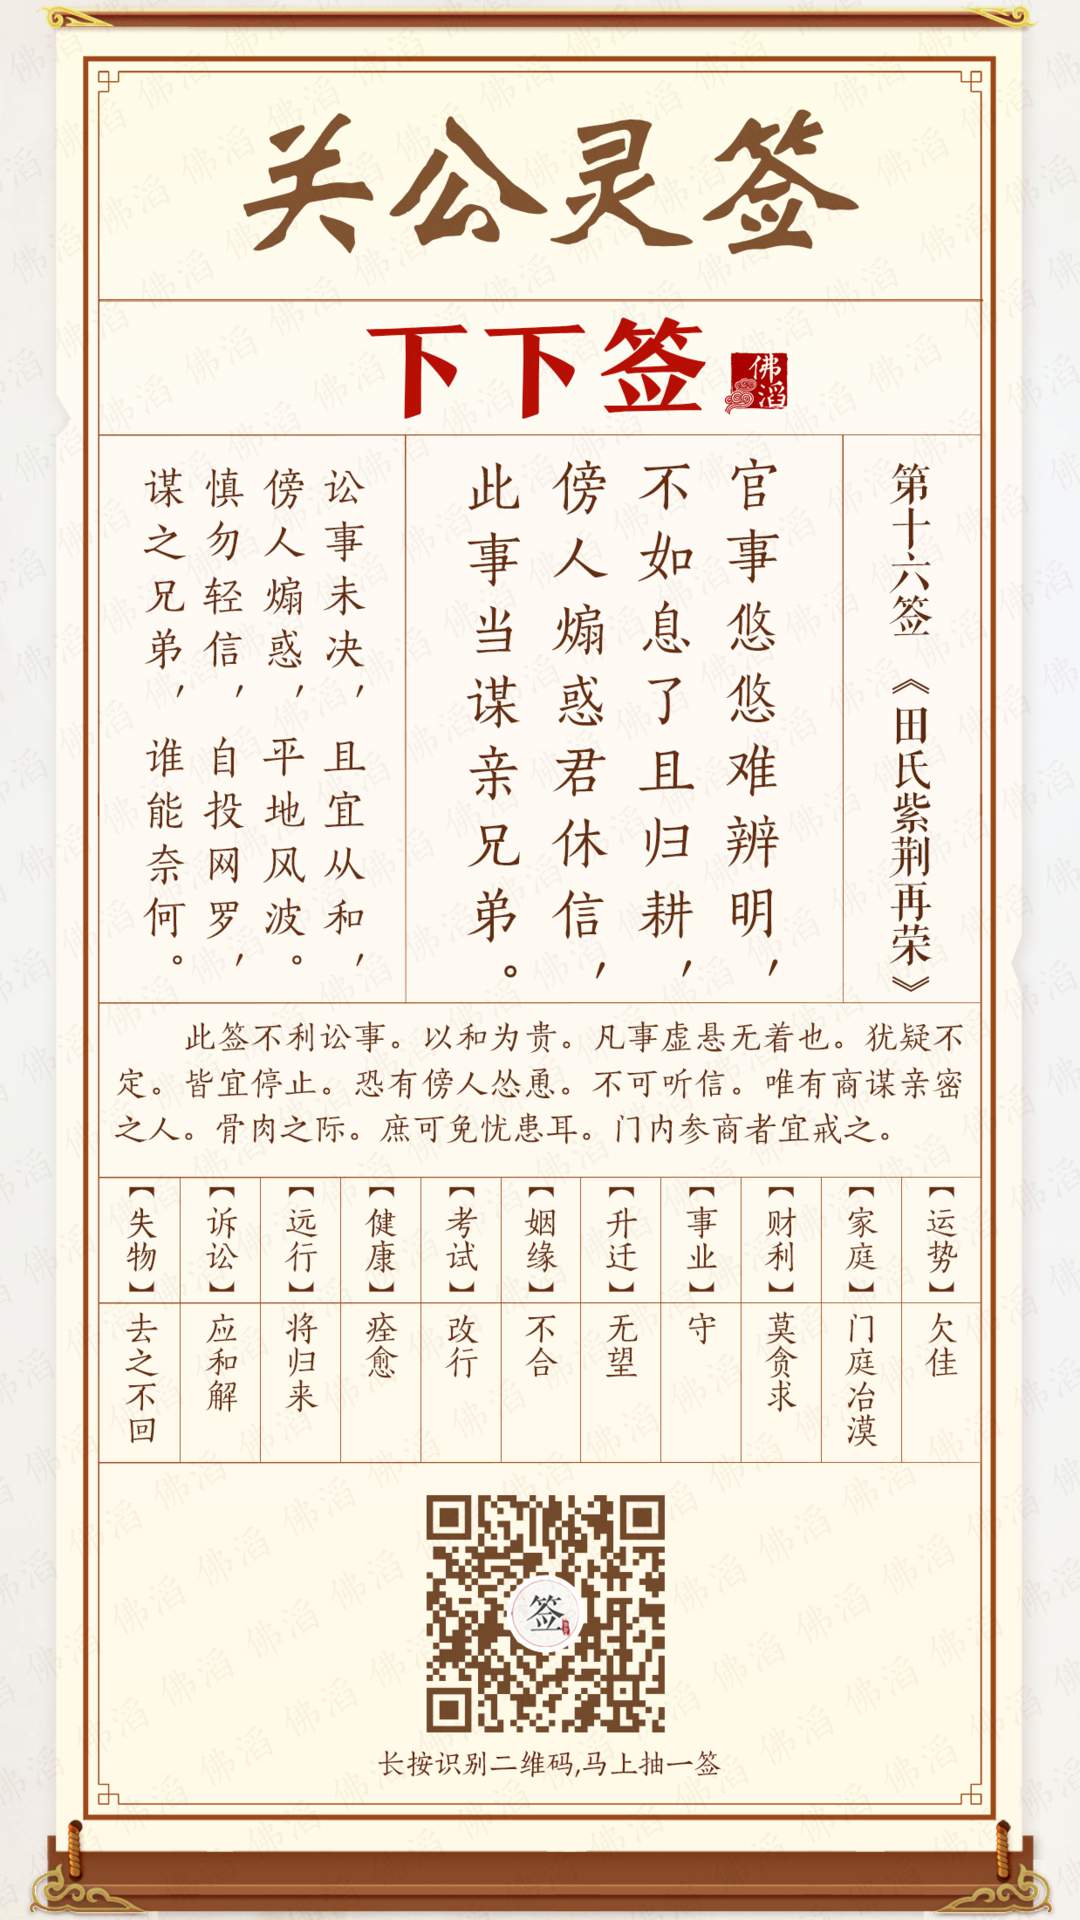 关公灵签
下下签
佛滔
第十六签 《田氏紫荆再荣》
官事悠悠难辨明，
不如息了且归耕，
傍人煽惑君休信，
此事当谋亲兄弟。
讼事未决，且宜从和，
傍人煽惑，平地风波。
慎勿轻信，自投网罗，
谋之兄弟，谁能奈何。
此签不利讼事。以和为贵。凡事虚悬无着也。犹疑不
定。皆宜停止。恐有傍人怂恿。不可听信。唯有商谋亲密
之人。骨肉之际。庶可免忧患耳。门内参商者宜戒之。
【运势】欠佳
【家庭】门庭冶漠
【财利】莫贪求
【事业】守
【升迁】无望
【姻缘】不合
【考试】改行
【健康】痊愈
【远行】将归来
【诉讼】应和解
【失物】去之不回
签
长按识别二维码,马上抽一签